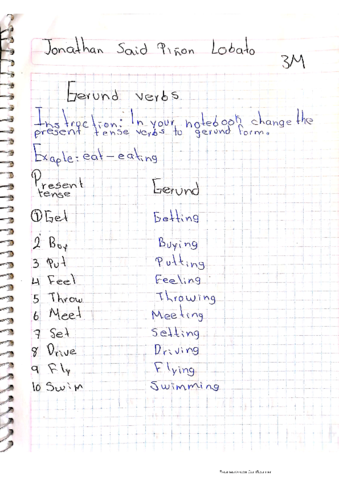 Jonathan Said Piñon Lobato
3M
Gerund verbs
Instruction: In your notebook change the
present tense verbs to gerund form.
Exaple: eat - eating
Present tense Gerund
1 Get Getting
2 Buy Buying
3 Put Putting
4 Feel Feeling
5 Throw Throwing
6 Meet Meeting
7 Set Setting
8 Drive Driving
9 Fly Flying
10 Swim Swimming